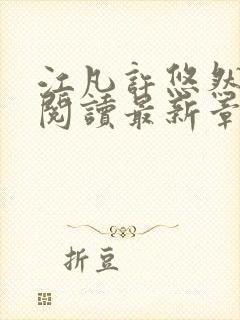 江凡許悠然
閱讀最新章
折豆